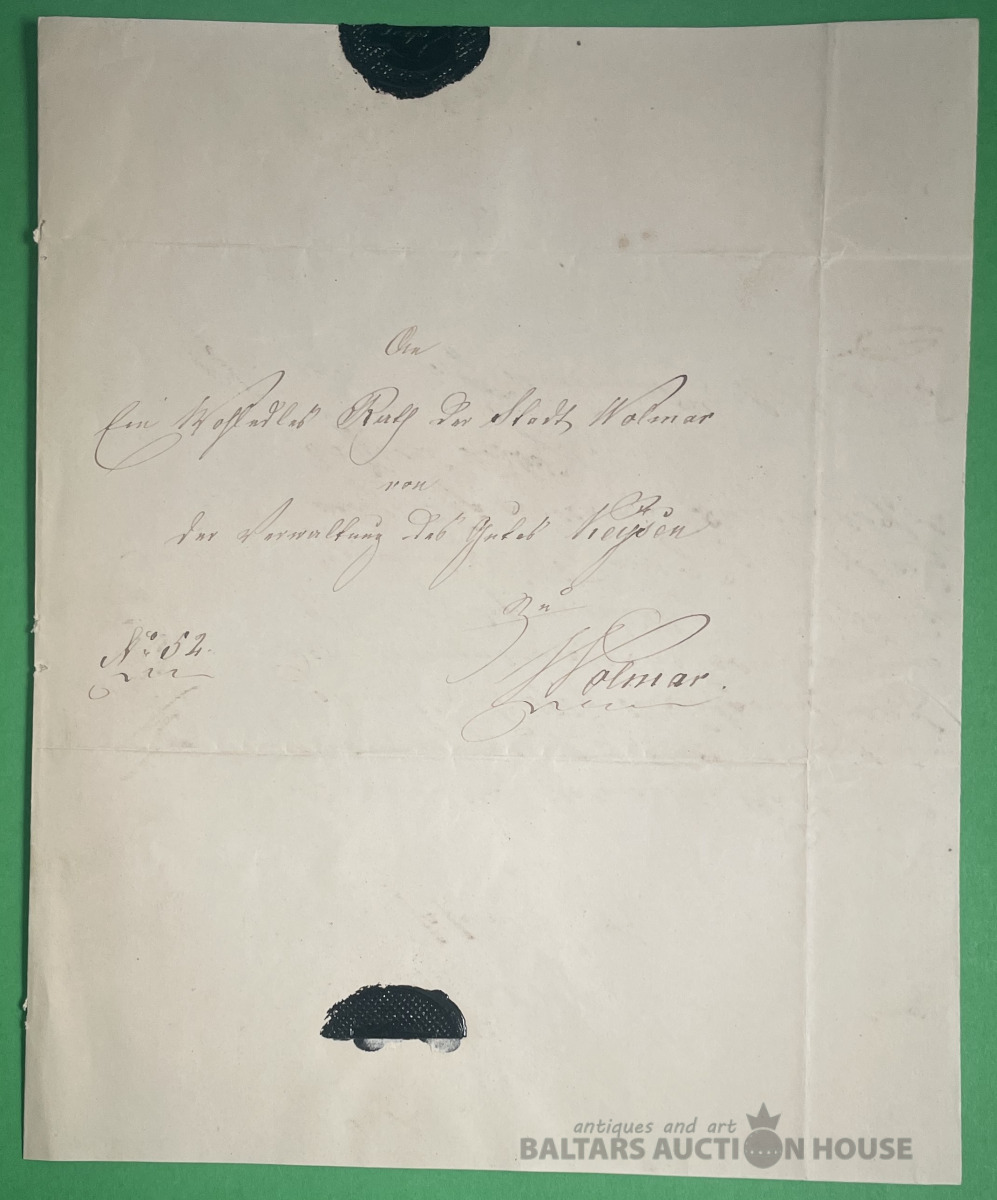 An
Ein Wohledles Rath der Stadt Wolmar
von
der Verwaltung des Gutes Keysen
zu
Wolmar.
No. 52.
antiques and art
BALTARS AUCTION HOUSE